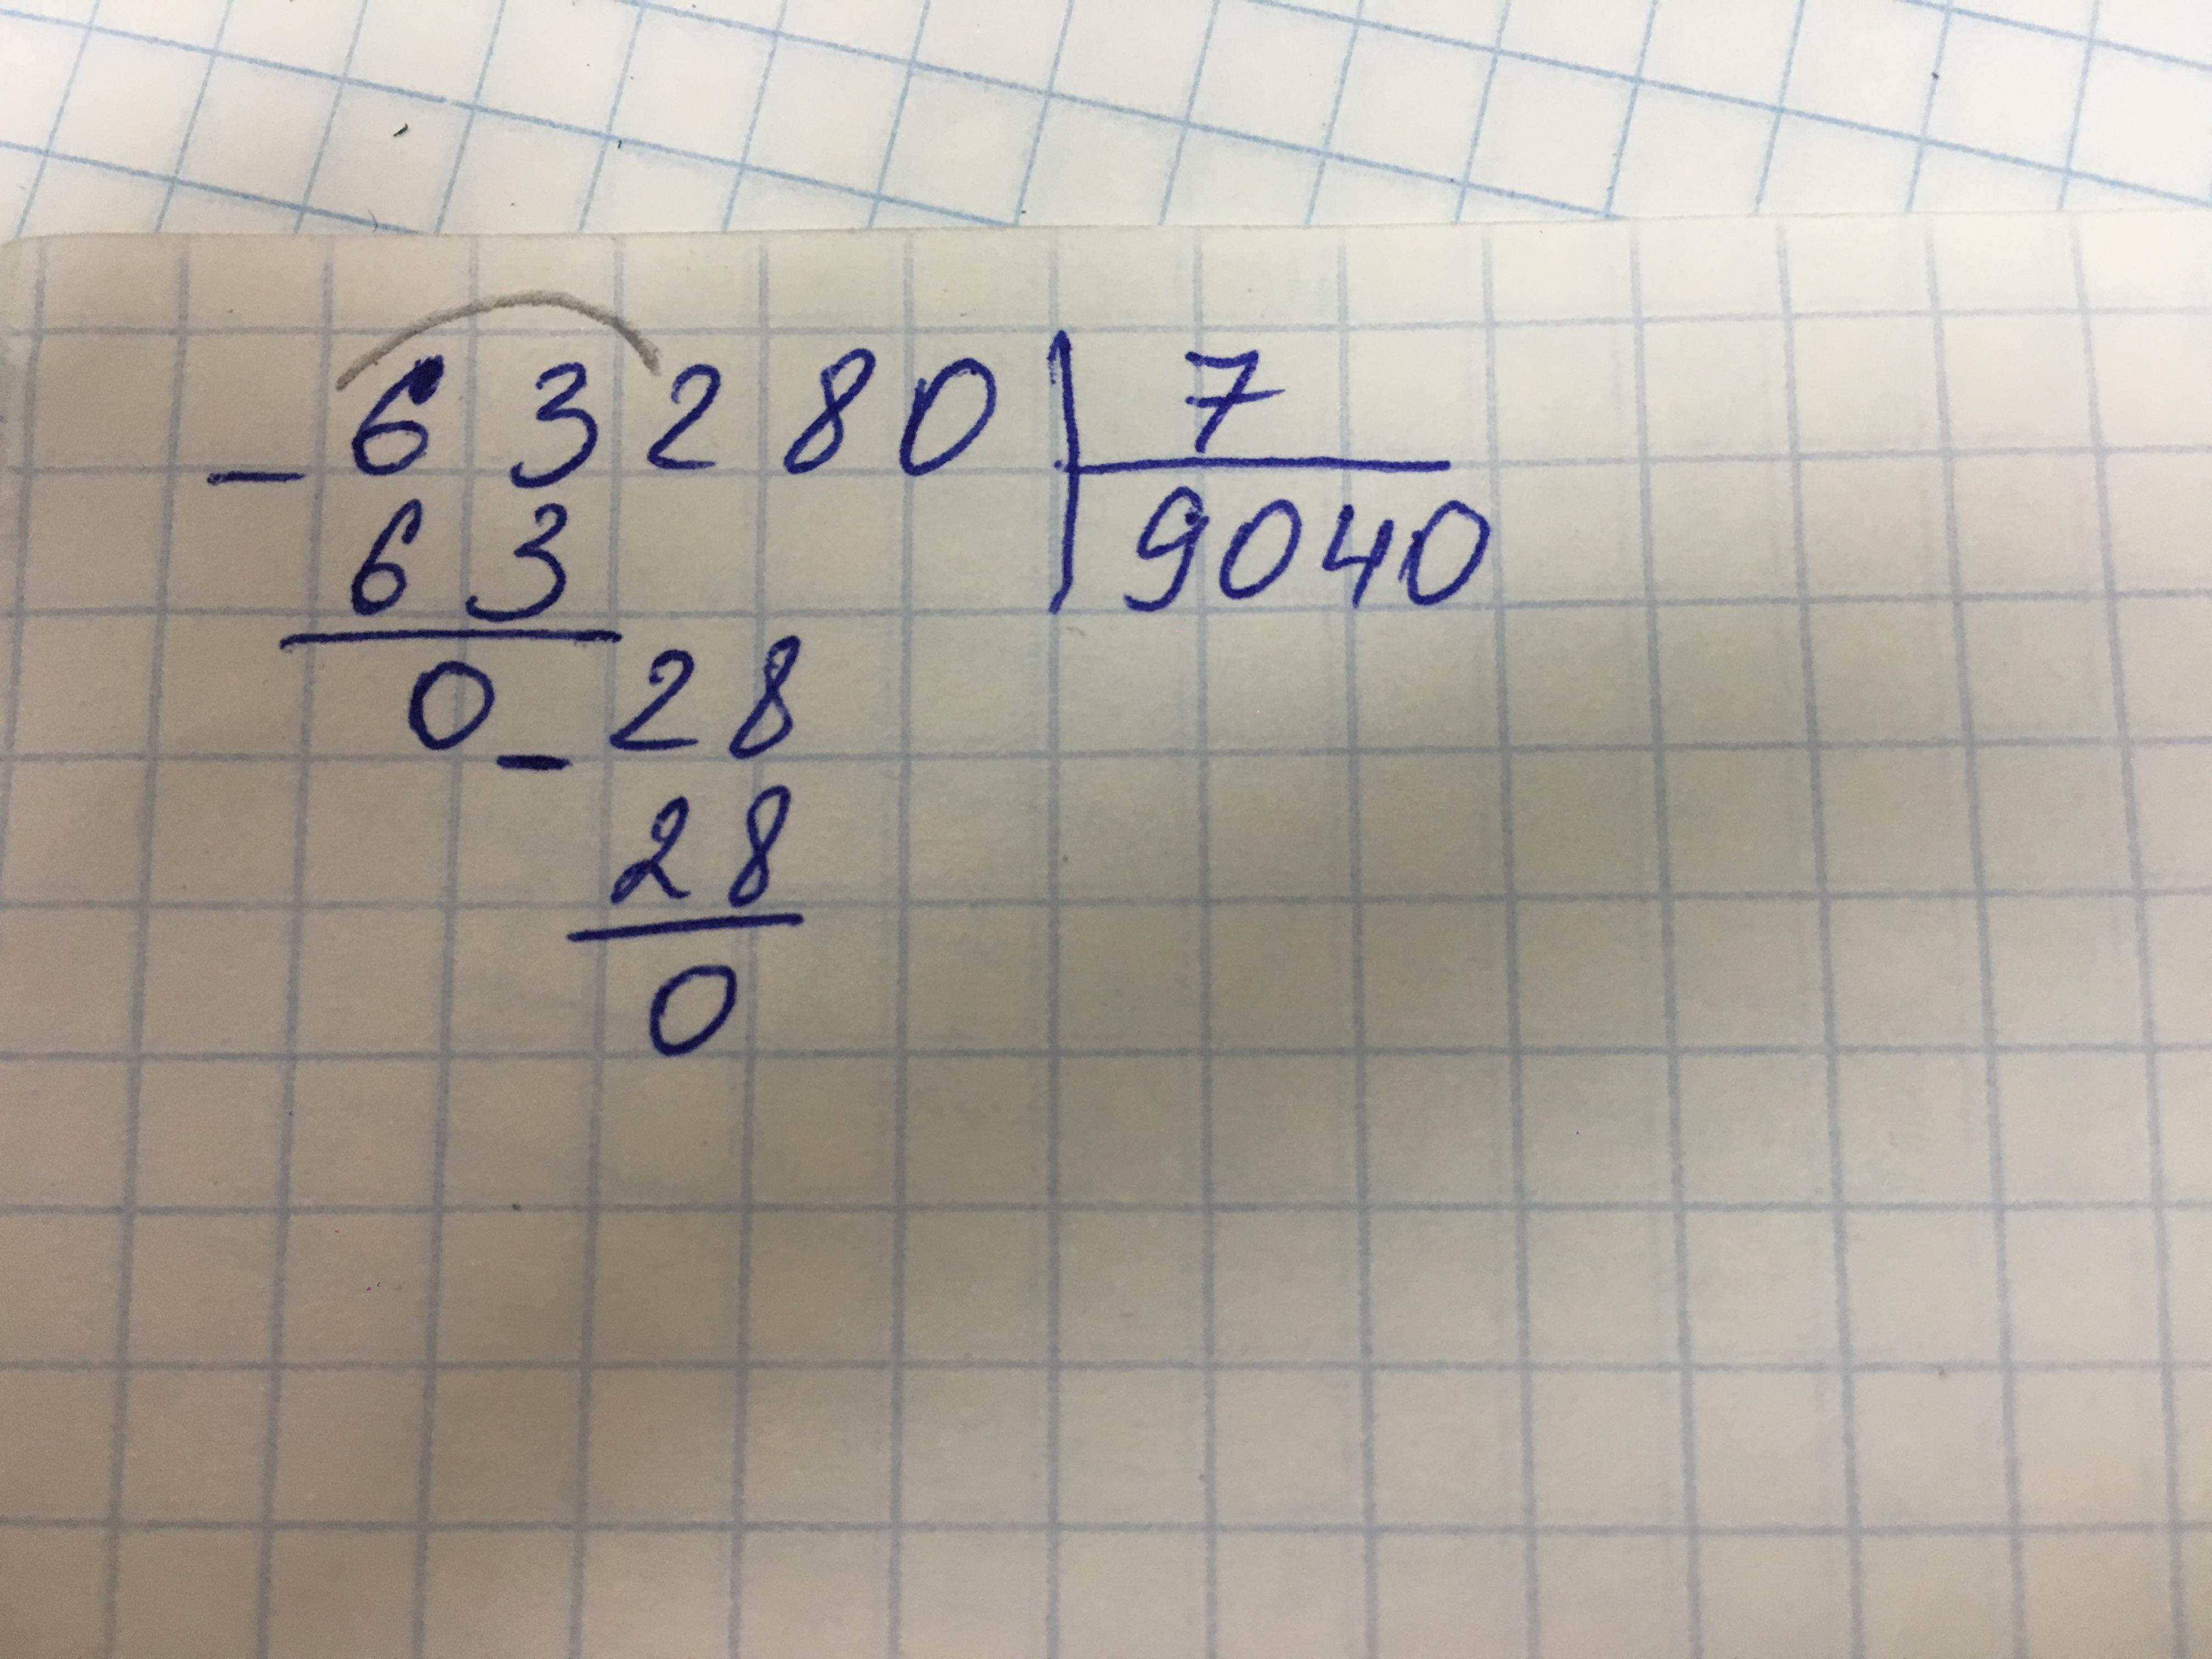 - 63280 | 7
63 | 9040
0 - 28
28
0